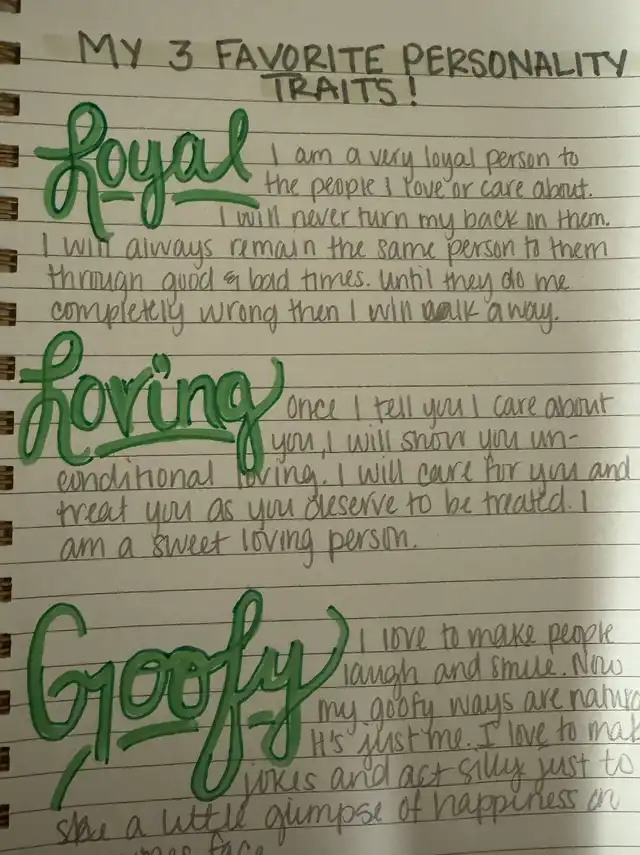 MY 3 FAVORITE PERSONALITY
TRAITS!
Loyal I am a very loyal person to
the people I love or care about.
I will never turn my back on them.
I will always remain the same person to them
through good & bad times. Until they do me
completely wrong then I will walk away.
Loving Once I tell you I care about
you, I will show you un-
conditional loving. I will care for you and
treat you as you deserve to be treated. I
am a sweet loving person.
Goofy I love to make people
laugh and smile. Now
my goofy ways are
It's just me. I love to
jokes and act silly just to
a little glimpse of happiness on
face